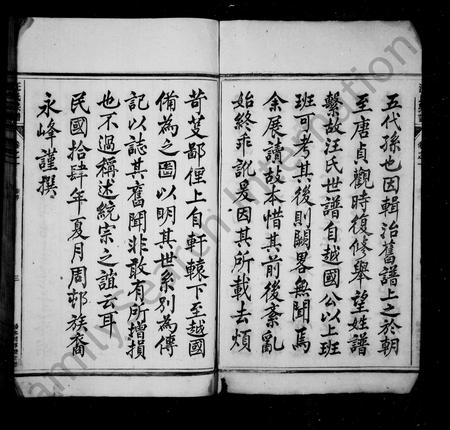 五代孫也因輯治舊譜上之於朝
至唐貞觀時復修舉望姓譜
繫故汪氏世譜自越國公以上班
班可考其後則闕畧無聞焉
余展讀故本惜其前後紊亂
始終乖訛爰因其所載去煩
苛芟鄙俚上自軒轅下至越國
備為之圖以明其世系別為傳
記以誌其舊聞非敢有所增損
也不過稱述統宗之誼云耳
民國拾肆年夏月周邨族裔
永峰謹撰
Family Search International